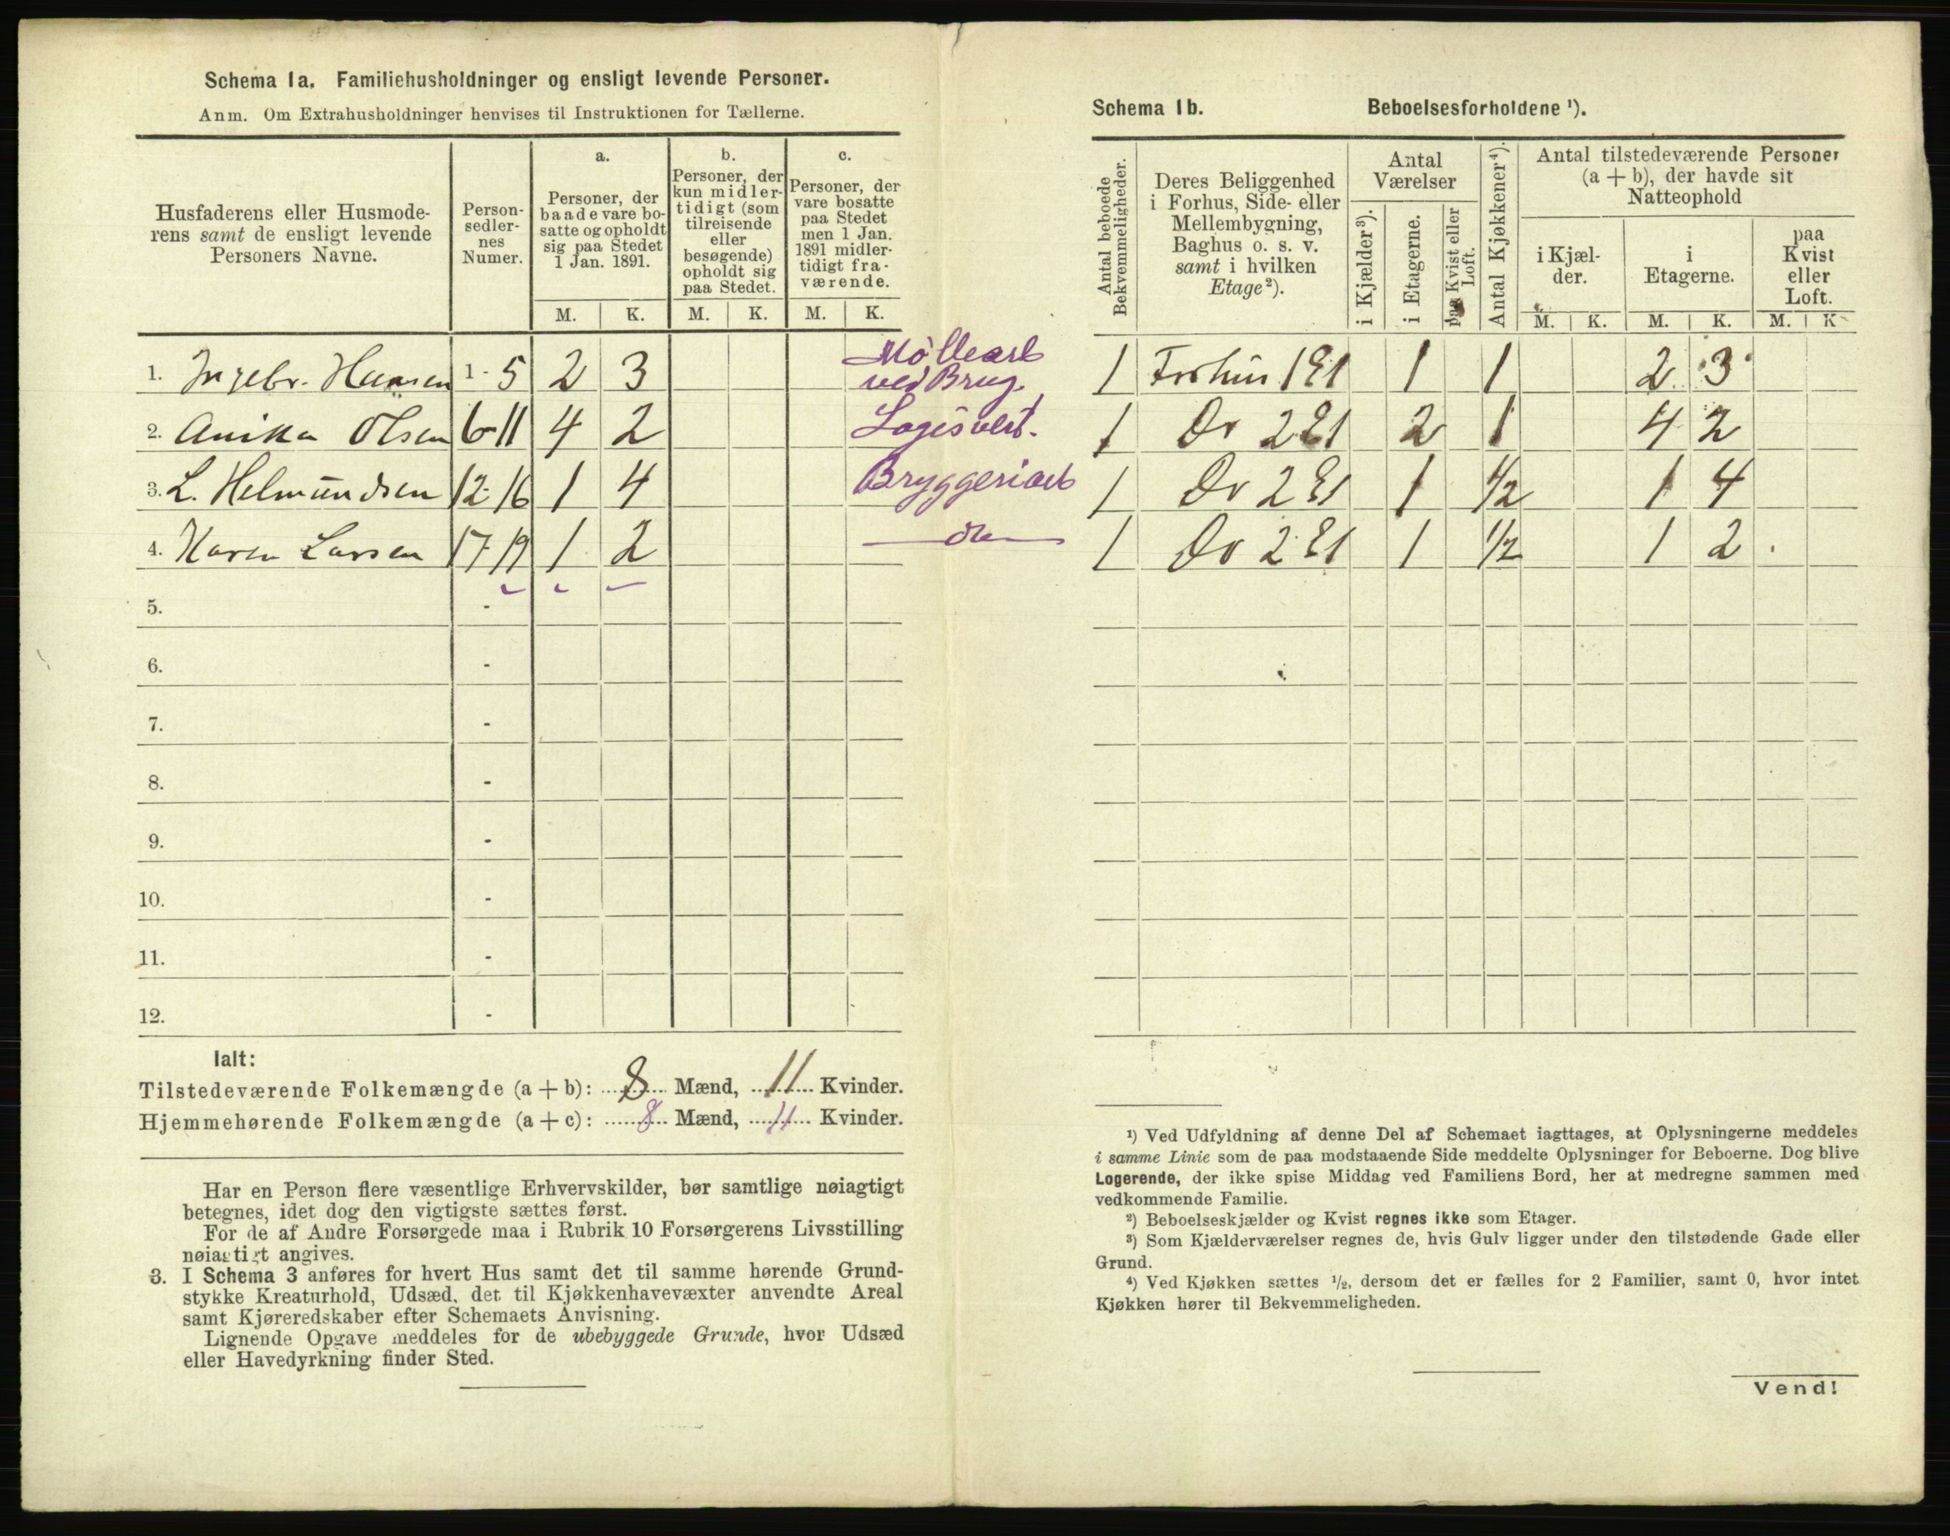 Schema 1a. Familiehusholdninger og ensligt levende Personer.
Anm. Om Extrahusholdninger henvises til Instruktionen for Tællerne.
Husfaderens eller Husmode-
rens samt de ensligt levende
Personers Navne.
Person-
sedler-
nes
Numer.
a.
Personer, der
baade vare bo-
satte og opholdt
sig paa Stedet
1 Jan. 1891.
b.
Personer, der
kun midler-
tidigt (som
tilreisende
eller
besøgende)
opholdt sig
paa Stedet.
c.
Personer, der
vare bosatte
paa Stedet
men 1 Jan.
1891 midler-
tidigt fra-
værende.
M. K. M. K. M. K.
1. Ingebr. Hansen 1-5 2 3 Möllearb
ved Brug.
2. Anika Olsen 6-11 4 2 Logisvert.
3. L. Helmundsen 12-16 1 4 Bryggeriarb
4. Karen Larsen 17-19 1 2
5. -
6. -
7. -
8. -
9. -
10. -
11. -
12. -
Ialt:
Tilstedeværende Folkemængde (a + b): 8 Mænd, 11 Kvinder.
Hjemmehørende Folkemængde (a + c): 8 Mænd, 11 Kvinder.
Har en Person flere væsentlige Erhvervskilder, bør samtlige nøiagtigt
betegnes, idet dog den vigtigste sættes først.
For de af Andre Forsørgede maa i Rubrik 10 Forsørgerens Livsstilling
nøiagtigt angives.
3. I Schema 3 anføres for hvert Hus samt det til samme hørende Grund-
stykke Kreaturhold, Udsæd, det til Kjøkkenhavevæxter anvendte Areal
samt Kjøreredskaber efter Schemaets Anvisning.
Lignende Opgave meddeles for de ubebyggede Grunde, hvor Udsæd
eller Havedyrkning finder Sted.
Schema 1b. Beboelsesforholdene ¹).
Antal beboede
Bekvemmeligheder.
Deres Beliggenhed
i Forhus, Side- eller
Mellembygning,
Baghus o. s. v.
samt i hvilken
Etage²).
Antal
Værelser
i Kjælder³).
i Etagerne.
paa Kvist eller
Loft.
Antal Kjøkkener⁴).
Antal tilstedeværende Personer
(a + b), der havde sit
Natteophold
i Kjæl-
der.
i
Etagerne.
paa
Kvist
eller
Loft.
M. K. M. K. M. K
1 Forhus 1 E1 1 1 2 3
1 Do 2 E1 2 1 4 2
1 Do 2 E1 1 1/2 1 4
1 Do 2 E1 1 1/2 1 2
¹) Ved Udfyldning af denne Del af Schemaet iagttages, at Oplysningerne meddeles
i samme Linie som de paa modstaaende Side meddelte Oplysninger for Beboerne. Dog blive
Logerende, der ikke spise Middag ved Familiens Bord, her at medregne sammen med
vedkommende Familie.
²) Beboelseskjælder og Kvist regnes ikke som Etager.
³) Som Kjælderværelser regnes de, hvis Gulv ligger under den tilstødende Gade eller
Grund.
⁴) Ved Kjøkken sættes ½, dersom det er fælles for 2 Familier, samt 0, hvor intet
Kjøkken hører til Bekvemmeligheden.
Vend!